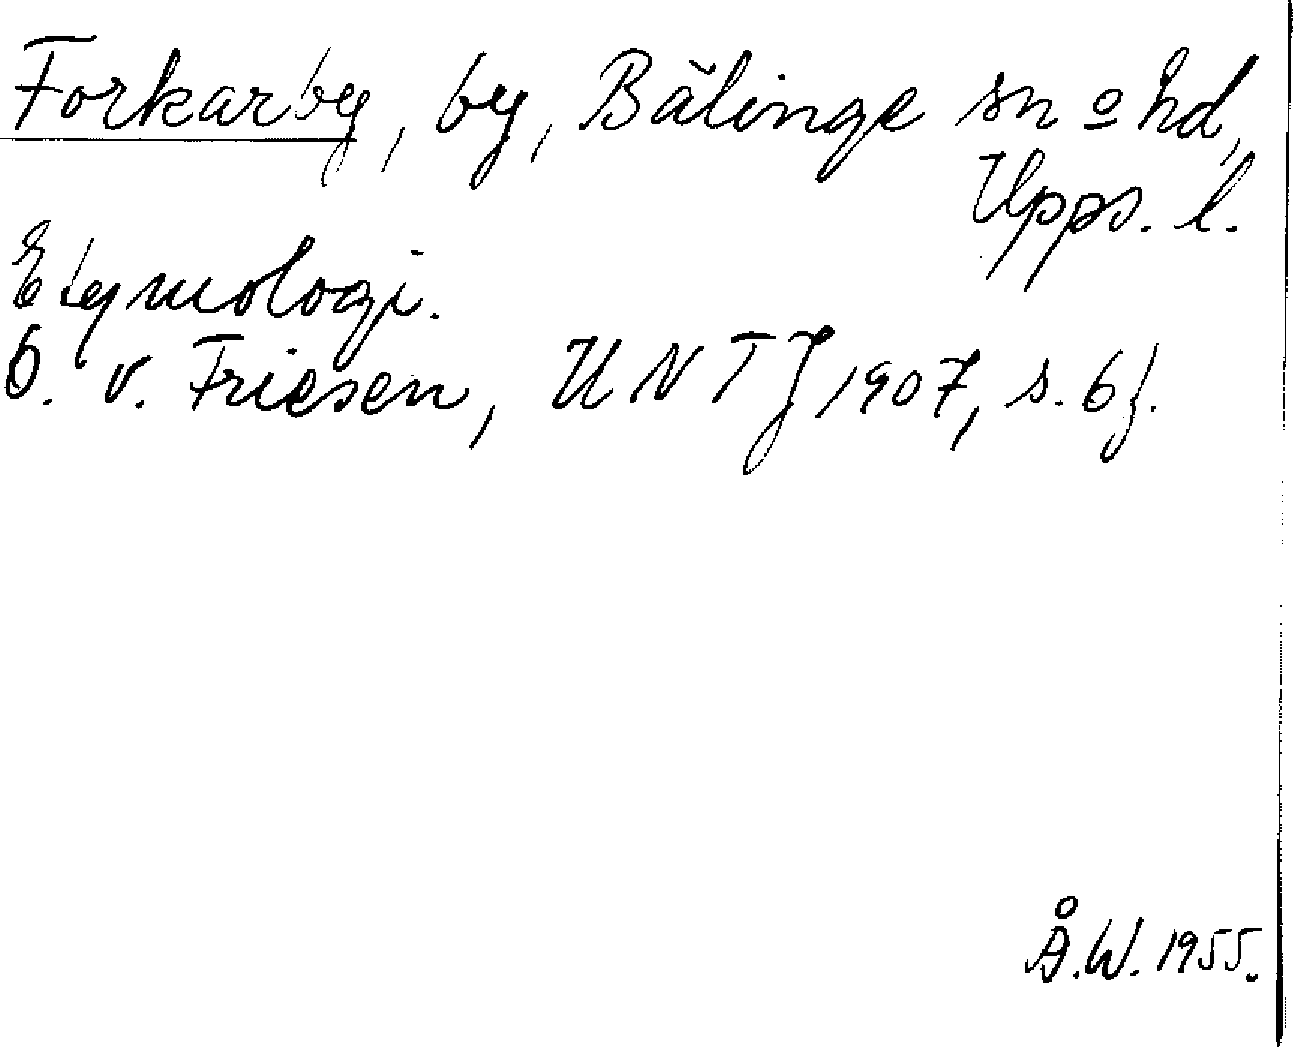 Forkarby, by, Bälinge sn o hd,
Upps. l.
Etymologi.
O. v. Friesen, UNTJ 1907, s. 6 f.
Å.W. 1955.